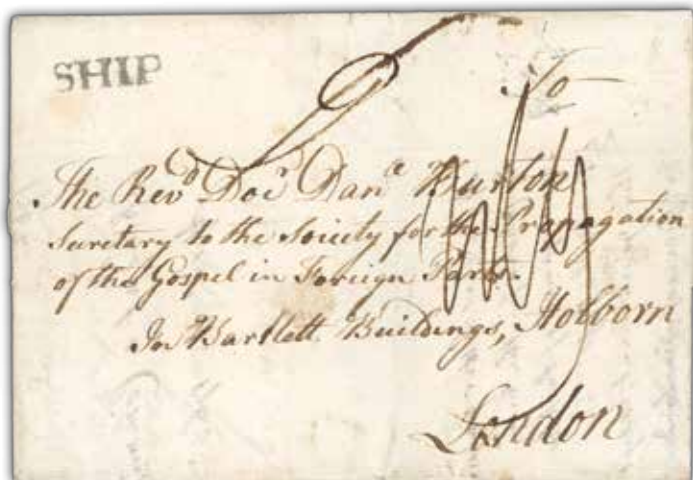 SHIP
To
The Revd Docr Danl Burton
Secretary to the Society for the Propagation
of the Gospel in Foreign Parts.
In Bartlett Buildings, Holborn
London